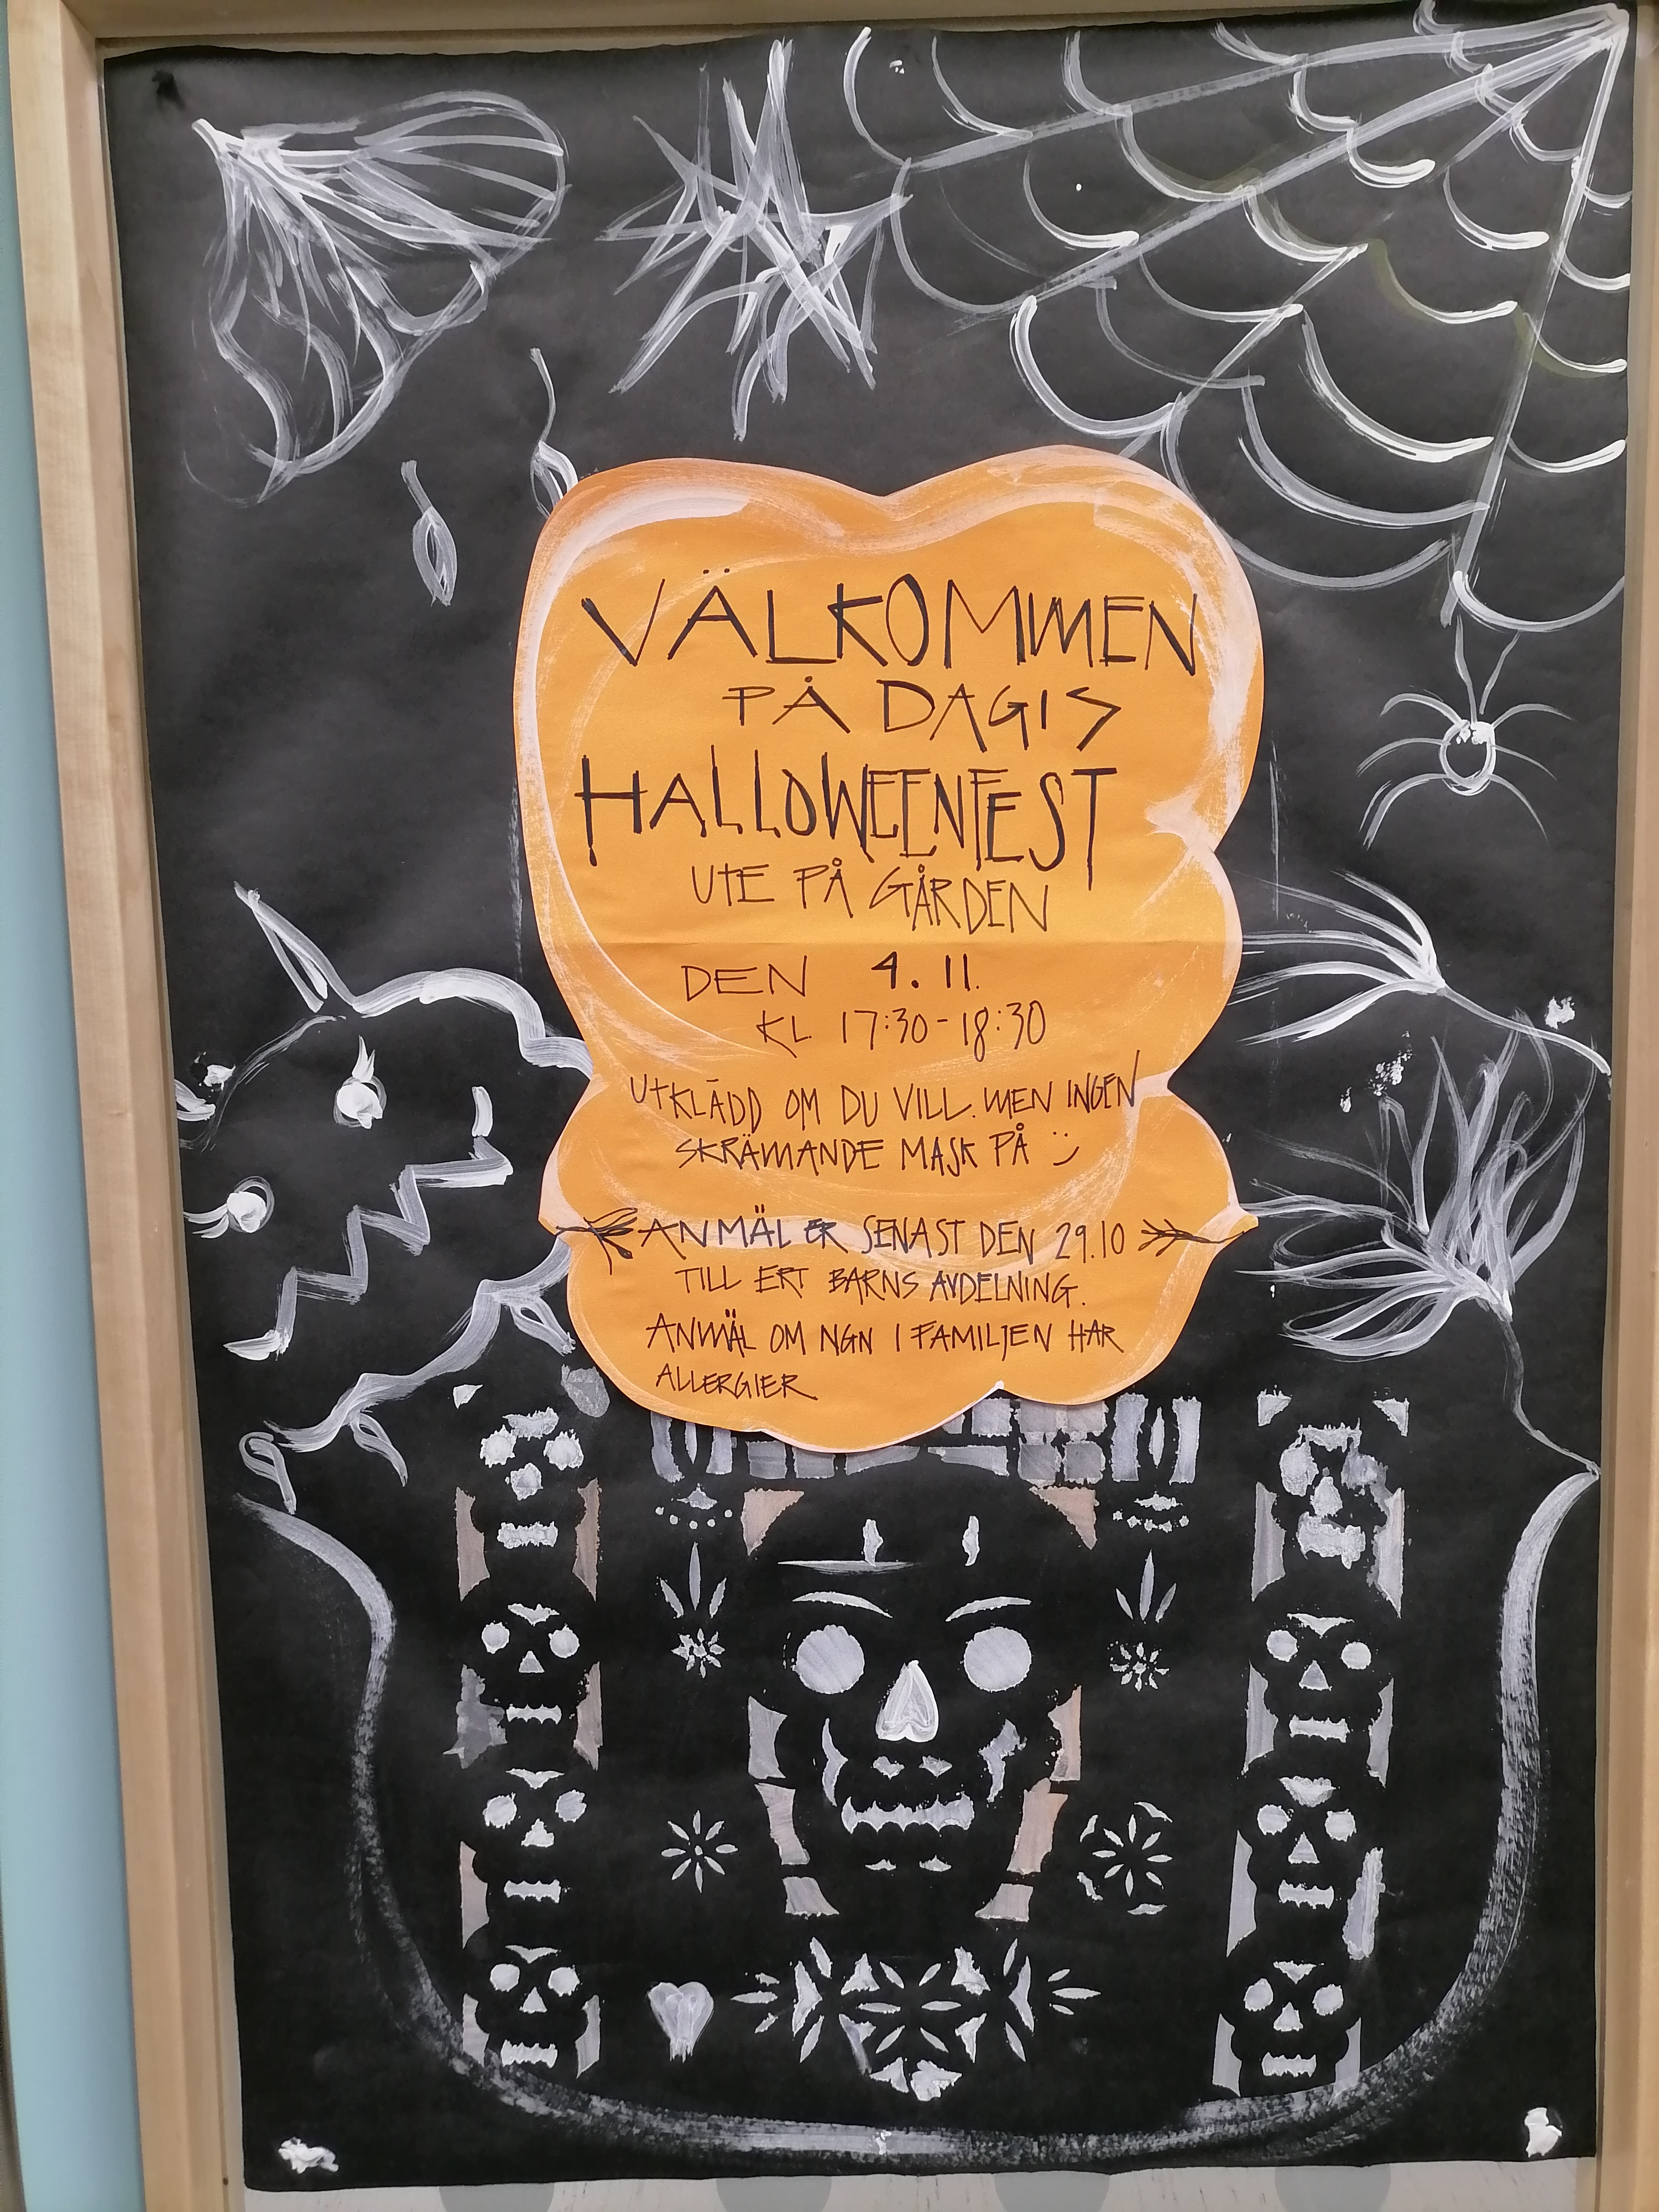 VÄLKOMMEN
PÅ DAGIS
HALLOWEENFEST
UTE PÅ GÅRDEN
DEN 4.11.
KL 17:30-18:30
UTKLÄDD OM DU VILL. MEN INGEN
SKRÄMANDE MASK PÅ :)
ANMÄL ER SENAST DEN 29.10
TILL ERT BARNS AVDELNING.
ANMÄL OM NGN I FAMILJEN HAR
ALLERGIER